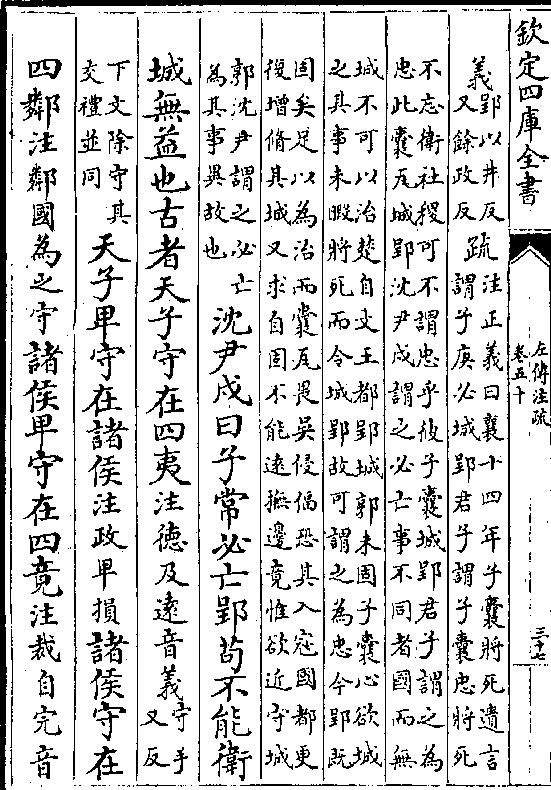 欽定四庫全書
左傳注疏
卷五十
三十七
義郢以井反
又餘政反
疏
注正義曰襄十四年子囊將死遺言
謂子庚必城郢君子謂子囊忠將死
不忘衛社稷可不謂忠乎彼子囊城郢君子謂之為
忠此囊瓦城郢沈尹戌謂之必亡事不同者國而無
城不可以治楚自文王都郢城郭未固子囊心欲城
之其事未暇將死而令城郢故可謂之為忠今郢既
固矣足以為治而囊瓦畏吳侵偪恐其入宼國都更
復增脩其城又求自固不能逺撫邊竟惟欲近守城
郭沈尹謂之必亡
為其事異故也
沈尹戌曰子常必亡郢苟不能衛
城無益也古者天子守在四夷注德及逺音義
守手
又反
下文除守其
交禮並同
天子卑守在諸侯注政卑損諸侯守在
四鄰注鄰國為之守諸侯卑守在四竟注裁自完音